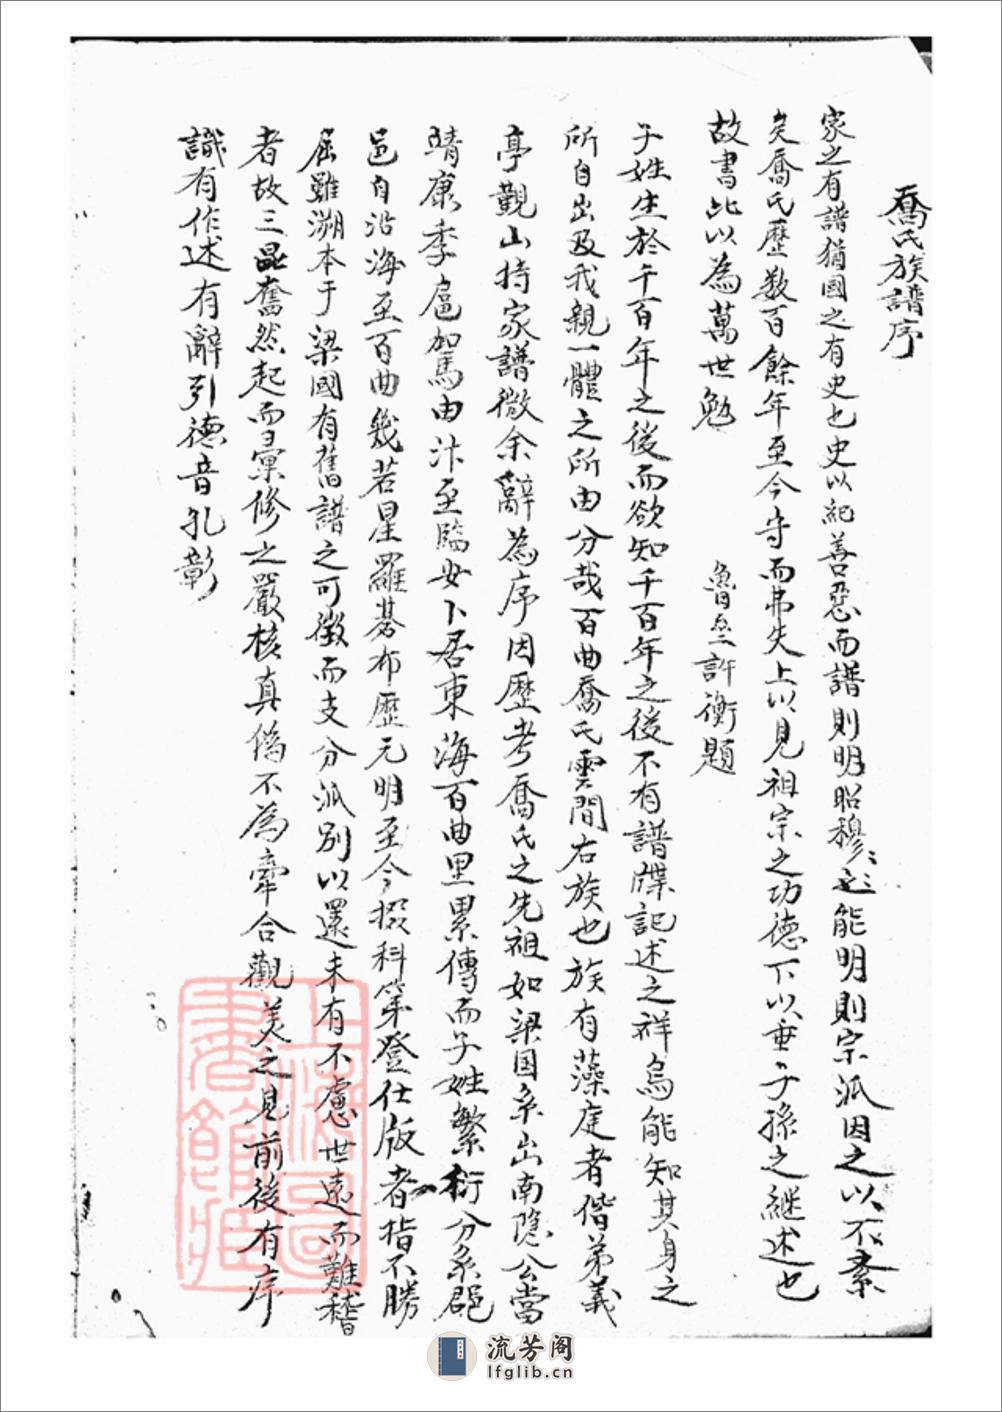 喬氏族譜序
家之有譜猶國之有史也史以紀善惡而譜則明昭穆〻能明則宗派因之以不紊
矣喬氏歷数百餘年至今守而弗失上以見祖宗之功德下以垂子孫之継述也
故書此以為萬世勉
魯齋許衡題
子姓生於千百年之後而欲知千百年之後不有譜牒記述之祥烏能知其身之
所自出及我親一體之所由分哉百曲喬氏雲間右族也族有藻庭者偕弟義
亭觀山持家譜徵余辭為序因歷考喬氏之先祖如梁国系出南隐公當
靖康季扈加馬由汴至臨安卜居東海百曲里累傳而子姓繁衍分系
邑自沿海至百曲幾若星羅碁布歷元明至今掇科第登仕版者指不勝
屈雖溯本于梁國有舊譜之可徵而支分派別以還未有不慮世遠而難稽
者故三昆奮然起而彙修之嚴核真偽不為牽合觀美之見前後有序
識有作述有辭引德音孔彰
上海圖書館藏
流芳阁
lfglib.cn